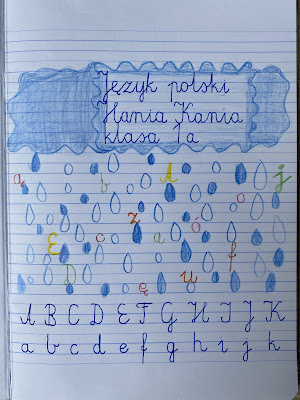 Język polski
Hania Kania
klasa 1a
ą b j
z o
ó
E c a
f
D u
ę
A B C D E F G H I J K
a b c d e f g h i j k